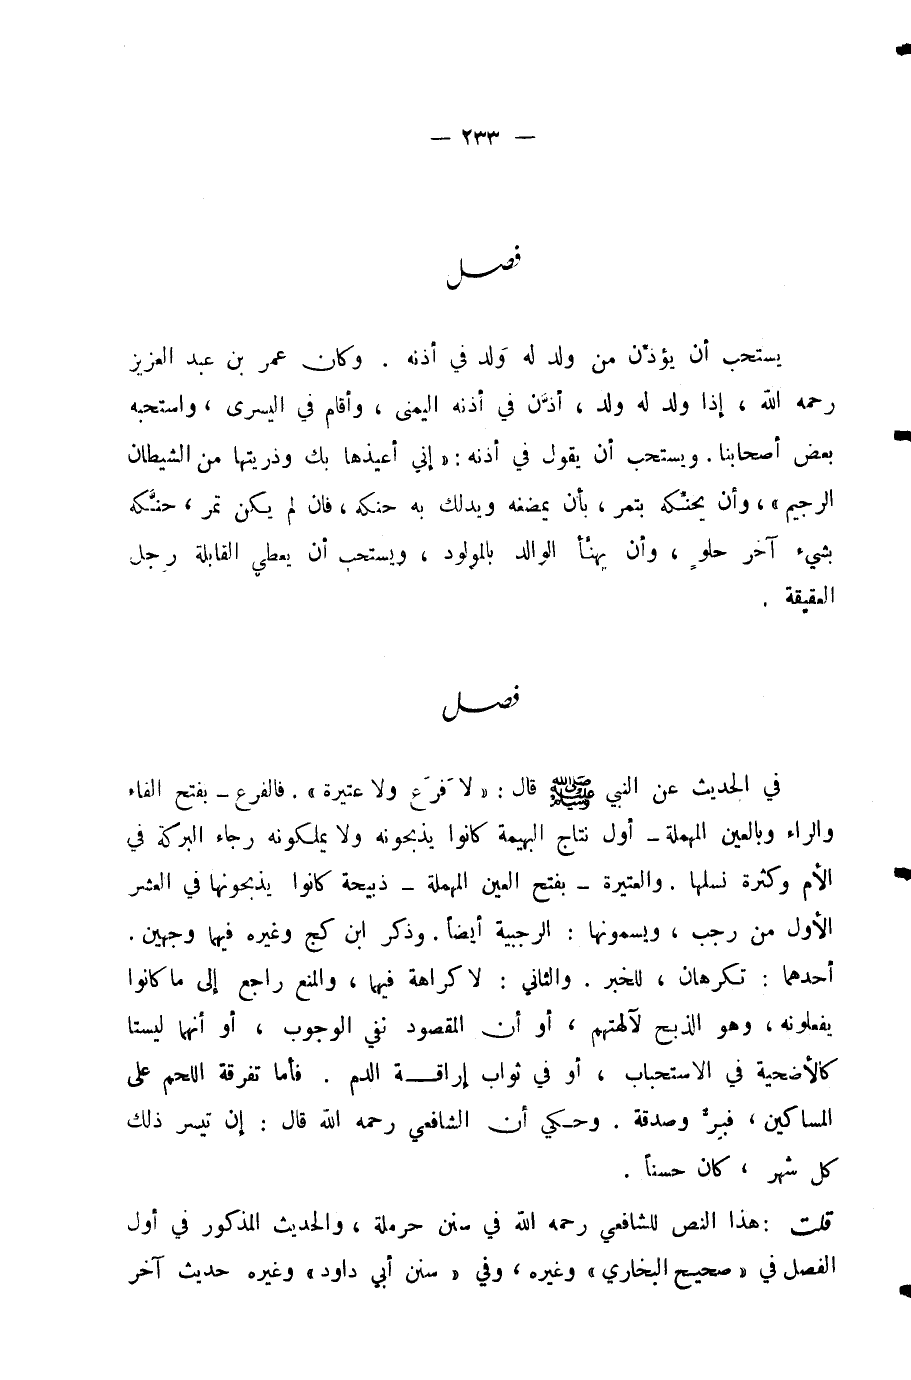 — ٢٣٣ —
فصل
يستحب أن يؤذّن من ولد له وَلد في أذنه . وكان عمر بن عبد العزيز
رحمه الله ، إذا ولد له ولد ، أذَّن في أذنه اليمنى ، وأقام في اليسرى ، واستحبه
بعض أصحابنا . ويستحب أن يقول في أذنه : « إني أعيذها بك وذريتها من الشيطان
الرجيم » ، وأن يحنّكه بتمر ، بأن يمضغه ويدلك به حنكه ، فان لم يكن تمر ، حنَّكه
بشيء آخر حلوٍ ، وأن يهنأ الوالد بالمولود ، ويستحب أن يعطي القابلة رجل
العقيقة .
فصل
في الحديث عن النبي ﷺ قال : « لا فَرَع ولا عتيرة » . فالفرع ـ بفتح الفاء
والراء وبالعين المهملة ـ أول نتاج البهيمة كانوا يذبحونه ولا يملكونه رجاء البركة في
الأم وكثرة نسلها . والعتيرة ـ بفتح العين المهملة ـ ذبيحة كانوا يذبحونها في العشر
الأول من رجب ، ويسمونها : الرجبية أيضاً . وذكر ابن كج وغيره فيها وجهين .
أحدهما : تكرهان ، للخبر . والثاني : لا كراهة فيها ، والمنع راجع إلى ما كانوا
يفعلونه ، وهو الذبح لآلهتهم ، أو أن المقصود نفي الوجوب ، أو أنها ليستا
كالأضحية في الاستحباب ، أو في ثواب إراقــة الدم . فأما تفرقة اللحم على
المساكين ، فبرٌّ وصدقة . وحكي أن الشافعي رحمه الله قال : إن تيسر ذلك
كل شهر ، كان حسناً .
قلت : هذا النص للشافعي رحمه الله في سنن حرملة ، والحديث المذكور في أول
الفصل في « صحيح البخاري » وغيره ، وفي « سنن أبي داود » وغيره حديث آخر